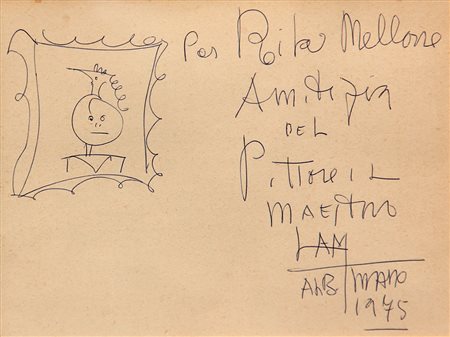 Per Rita Mellone
Amitizia
DEL
Pittore IL
MAESTRO
LAM
ALB
1975